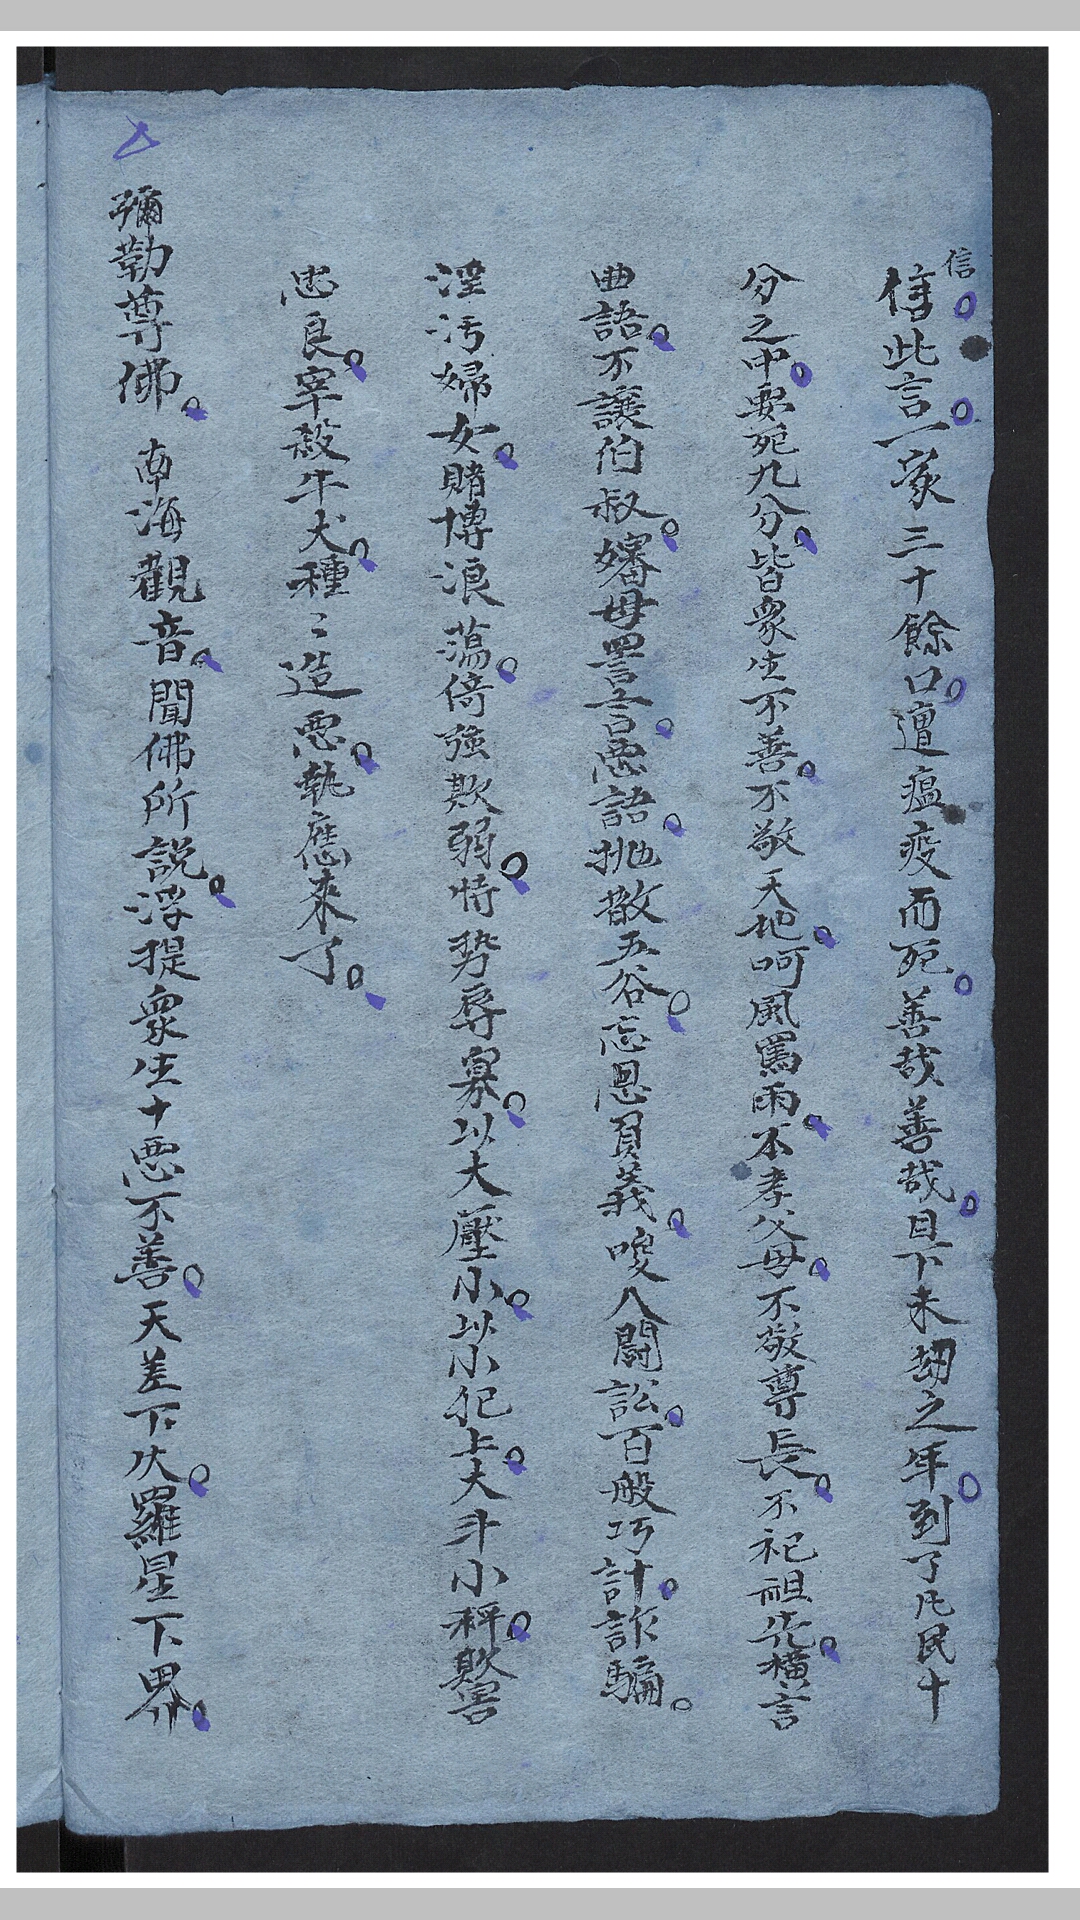 信
信此言一家三十餘口遭瘟疫而死善哉善哉目下末劫之年到了凡民十
分之中要死九分皆衆生不善不敬天地呵風罵雨不孝父母不敬尊長不祀祖先橫言
曲語不讓伯叔嬸母詈言惡語抛散五谷忘恩負義唆人鬪訟百般巧計詐騙
淫污婦女賭博浪蕩倚強欺弱恃势辱寡以大壓小以小犯上大斗小秤欺害
忠良宰殺牛犬種〻造惡執應來了
彌勒尊佛南海觀音聞佛所説浮提衆生十惡不善天差下伏羅星下界